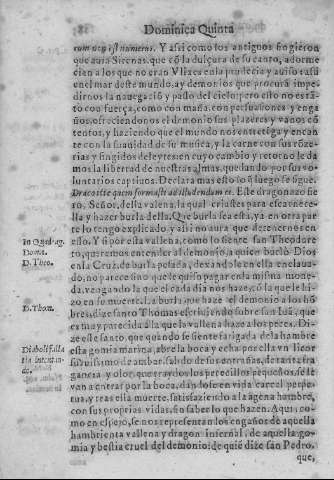 Dominica Quinta
com ocup est numerus. Y assi como los antiguos fingieron
que auia Sirenas, que cõ la dulçura de su canto, adorme
cian a los que no eran Vlixes en la prudẽcia y auiso: assi
en el mar deste mundo, ay demonios que procurã impe-
dirnos la nauegació y passo del cielo: pero esto no es tã-
to con fuerça, como con maña, con persuasiones y enga
ños, ofreciendonos el demonio sus plazeres y vanos cõ
tentos, y haziendo que el mundo nos entretenga y encan
te con la suauidad de su musica, y la carne con sus
y fingidos deleytes: en cuyo cambio y retorno le da
mos la libertad de nuestras almas, quedando por sus vo-
luntarios captiuos. Declara mas esto lo q̃ luego se sigue.
Draco iste quem formasti ad illudendum ei. Este dragonazo fie
ro, Señor, de la valena, la qual criastes para escarnece-
lla y hazer burla della. Que burla sea esta, ya en otra par
te lo tengo explicado, y assi no aura que detenernos en
ello. Y si por esta vallena, como lo siente san Theodore
to, queremos entender al demonio, a quien burlò Dios
en la Cruz, de burla pesada, dexandole en ella enclaua-
do, no parece sino que le quiso pagar en la misma mone-
da, vengando la que el cada dia nos haze, cõ la que le hi-
zo en su muerte. La burla que haze el demonio a los hõ
bres, dize santo Thomas escriuiendo sobre san Iuã, que
es muy parecida à la que la vallena haze a los peces. Di-
ze este santo, que quando se siente fatigada de la hambre
esta gomia marina, abre la boca y echa por ella vn licor
suauissimo de ambar, salido de sus entrañas, de tanta fra
gancia y olor, que traydos los pececillos pequeños, se le
van a entrar por la boca, dandose en vida carcel perpe-
tua, y tras ella muerte, satisfaziendo a la agena hambre,
con sus proprias vidas, sin saber lo que hazen. Aqui, co-
mo en espejo, se nos representan los engaños de aquella
hambrienta vallena y dragon infernal, de aquella go-
mia y bestia cruel del demonio: de quiẽ dize san Pedro,
que,
Doma.
D. Theo.
D. Thom.